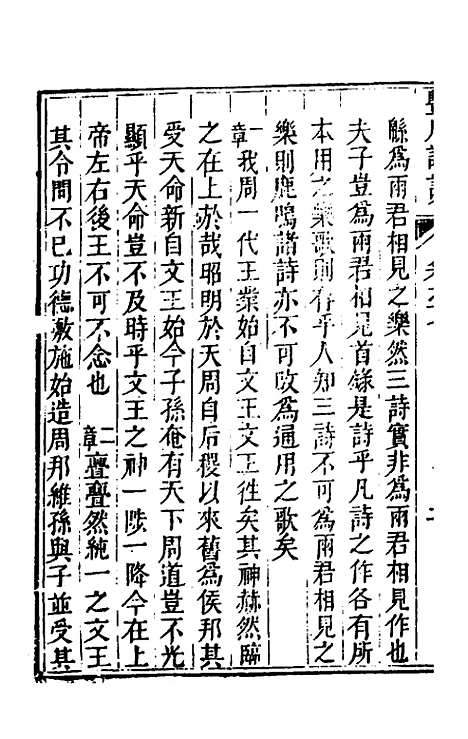 緜爲兩君相見之樂然三詩實非爲兩君相見作也
夫子豈爲兩君相見首錄是詩乎凡詩之作各有所
本用之樂歌則存乎人知三詩不可爲兩君相見之
樂則鹿鳴諸詩亦不可改爲通用之歌矣
一章我周一代王業始自文王文王徃矣其神赫然臨
之在上於哉昭明於天周自后稷以來舊爲侯邦其
受天命新自文王始今子孫奄有天下周道豈不光
顯乎天命豈不及時乎文王之神一陟一降今在上
帝左右後王不可不念也 二章亹亹然純一之文王
其令問不已功德敷施始造周邦維孫與子並受其